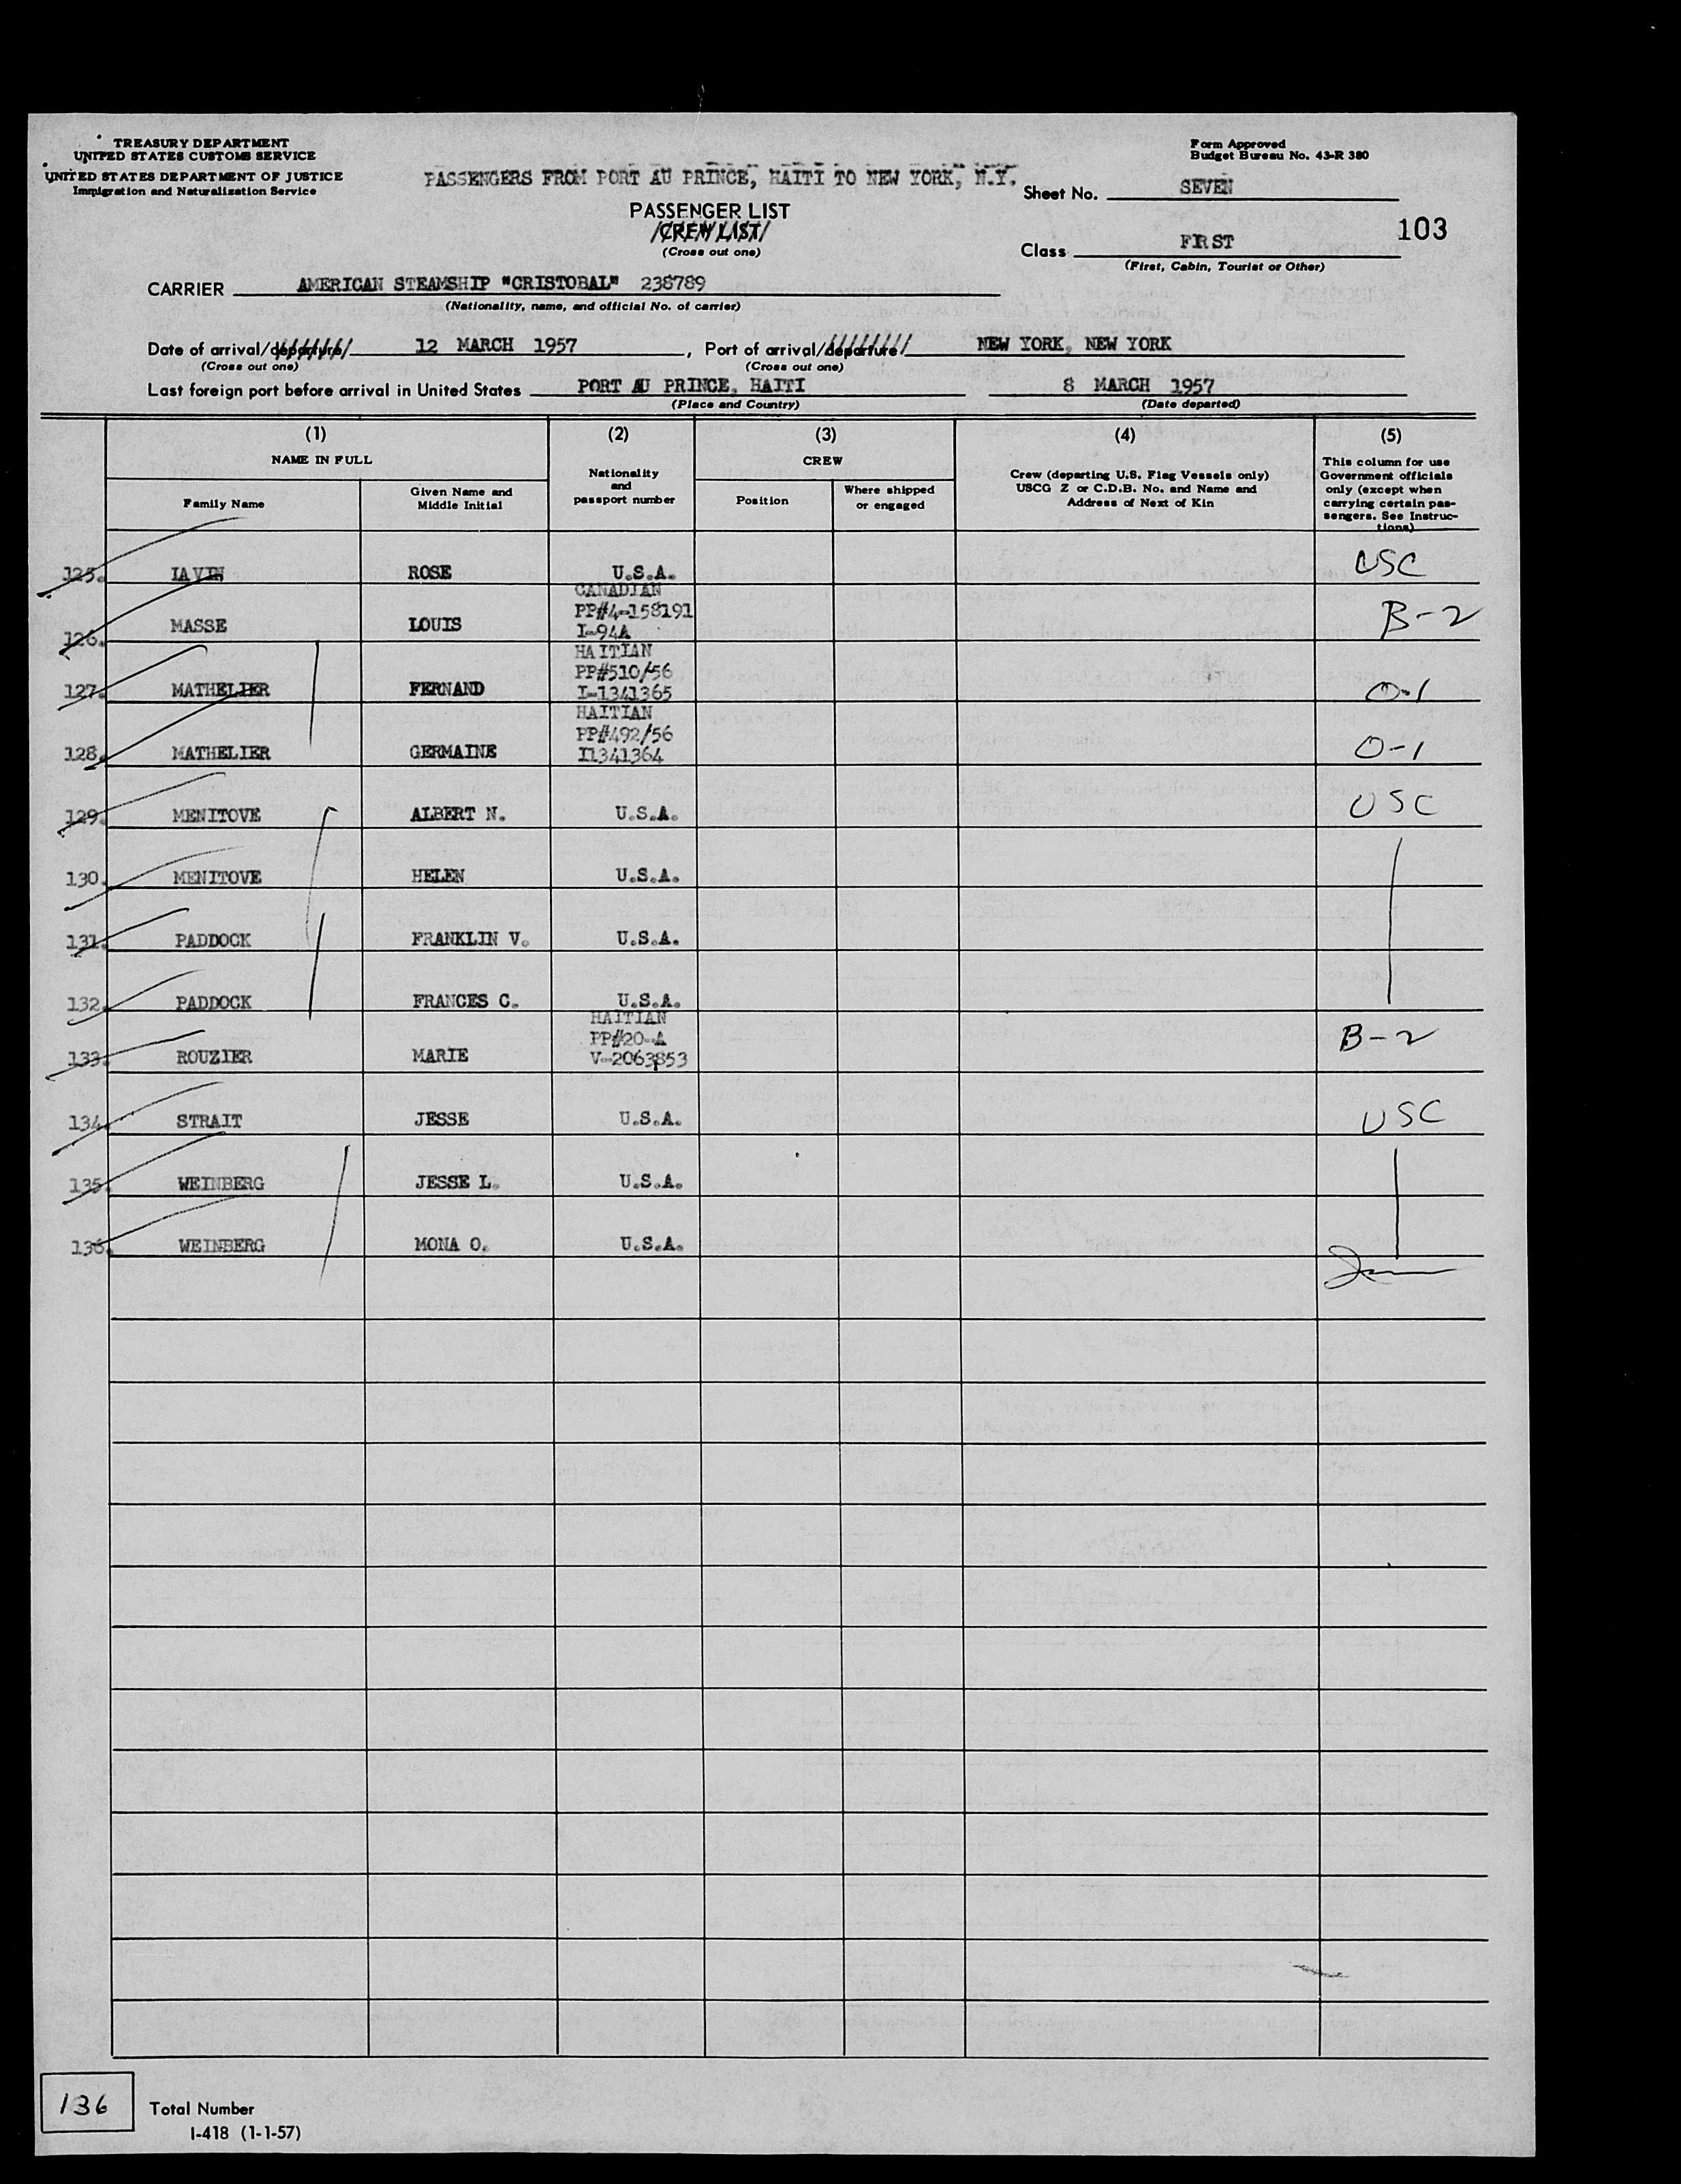 TREASURY DEPARTMENT
UNITED STATES CUSTOMS SERVICE
UNITED STATES DEPARTMENT OF JUSTICE
Immigration and Naturalization Service
Form Approved
Budget Bureau No. 43-R 380
PASSENGERS FROM PORT AU PRINCE, HAITI TO NEW YORK, N.Y.
Sheet No. SEVEN
PASSENGER LIST
CREW LIST
(Cross out one)
103
Class FIRST
(First, Cabin, Tourist or Other)
CARRIER AMERICAN STEAMSHIP "CRISTOBAL" 238789
(Nationality, name, and official No. of carrier)
Date of arrival/departure/ 12 MARCH 1957, Port of arrival/departure/ NEW YORK, NEW YORK
(Cross out one) (Cross out one)
Last foreign port before arrival in United States PORT AU PRINCE, HAITI 8 MARCH 1957
(Place and Country) (Date departed)
(1) (2) (3) (4) (5)
NAME IN FULL
Family Name
Given Name and
Middle Initial
Nationality
and
passport number
CREW
Position
Where shipped
or engaged
Crew (departing U.S. Flag Vessels only)
USCG Z or C.D.B. No. and Name and
Address of Next of Kin
This column for use
Government officials
only (except when
carrying certain pas-
sengers. See Instruc-
tions)
125. LAVIN ROSE U.S.A. USC
CANADIAN
PP#4-158191
126. MASSE LOUIS I-94A B-2
HAITIAN
PP#510/56
127. MATHELIER FERNAND I-1341365 O-1
HAITIAN
PP#492/56
128. MATHELIER GERMAINE I1341364 O-1
129. MENITOVE ALBERT N. U.S.A. USC
130. MENITOVE HELEN U.S.A.
131. PADDOCK FRANKLIN V. U.S.A.
132. PADDOCK FRANCES C. U.S.A.
HAITIAN
PP#20-A
133. ROUZIER MARIE V-2063853 B-2
134. STRAIT JESSE U.S.A. USC
135. WEINBERG JESSE L. U.S.A.
136. WEINBERG MONA O. U.S.A.
136 Total Number
I-418 (1-1-57)